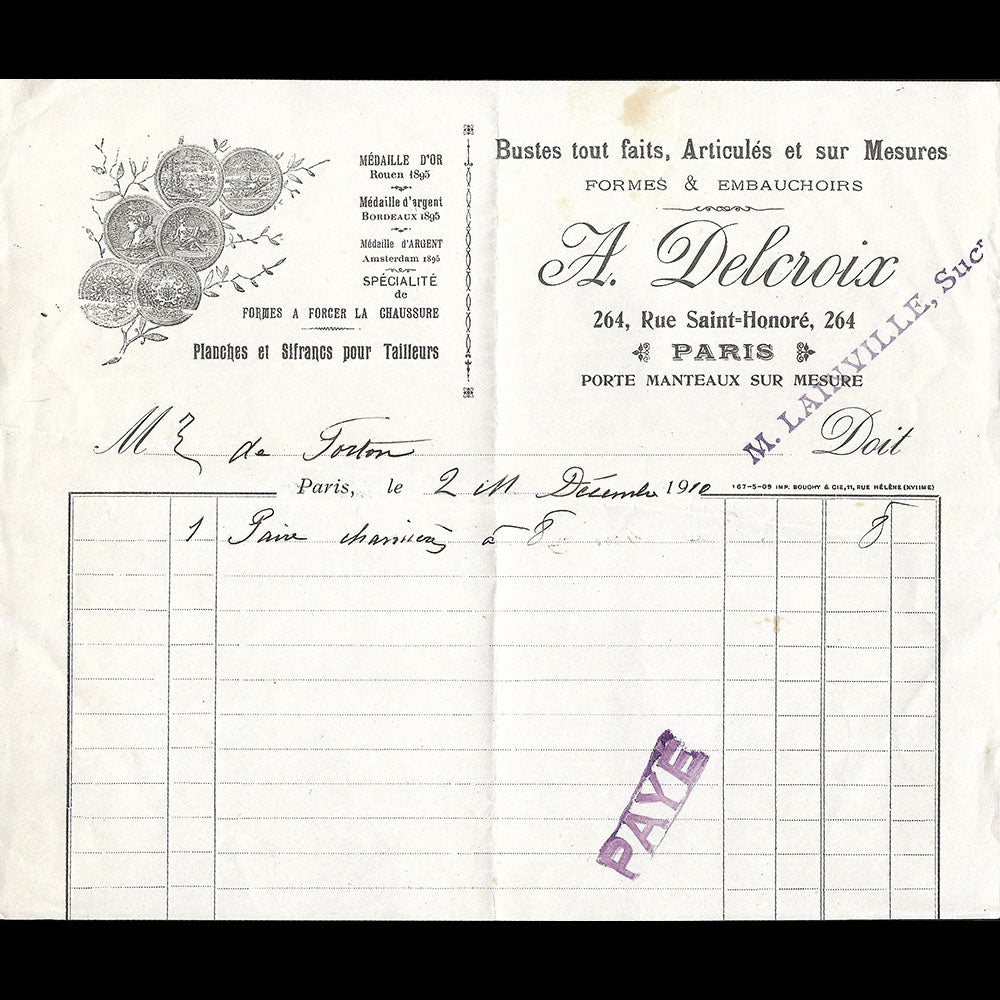 MÉDAILLE D'OR
Rouen 1895
Médaille d'argent
BORDEAUX 1895
Médaille d'ARGENT
Amsterdam 1895
SPÉCIALITÉ
de
FORMES A FORCER LA CHAUSSURE
Planches et Sifrancs pour Tailleurs
Bustes tout faits, Articulés et sur Mesures
FORMES & EMBAUCHOIRS
A. Delcroix
264, Rue Saint-Honoré, 264
PARIS
PORTE MANTEAUX SUR MESURE
M. LAINVILLE, Sucr
Doit
Mr de Forton
Paris, le 2 Décembre 1910
167-5-09 IMP. BOUCHY & CIE, 11, RUE HÉLÈNE (XVIIME)
1 Paire charnières à 8 8
PAYÉ